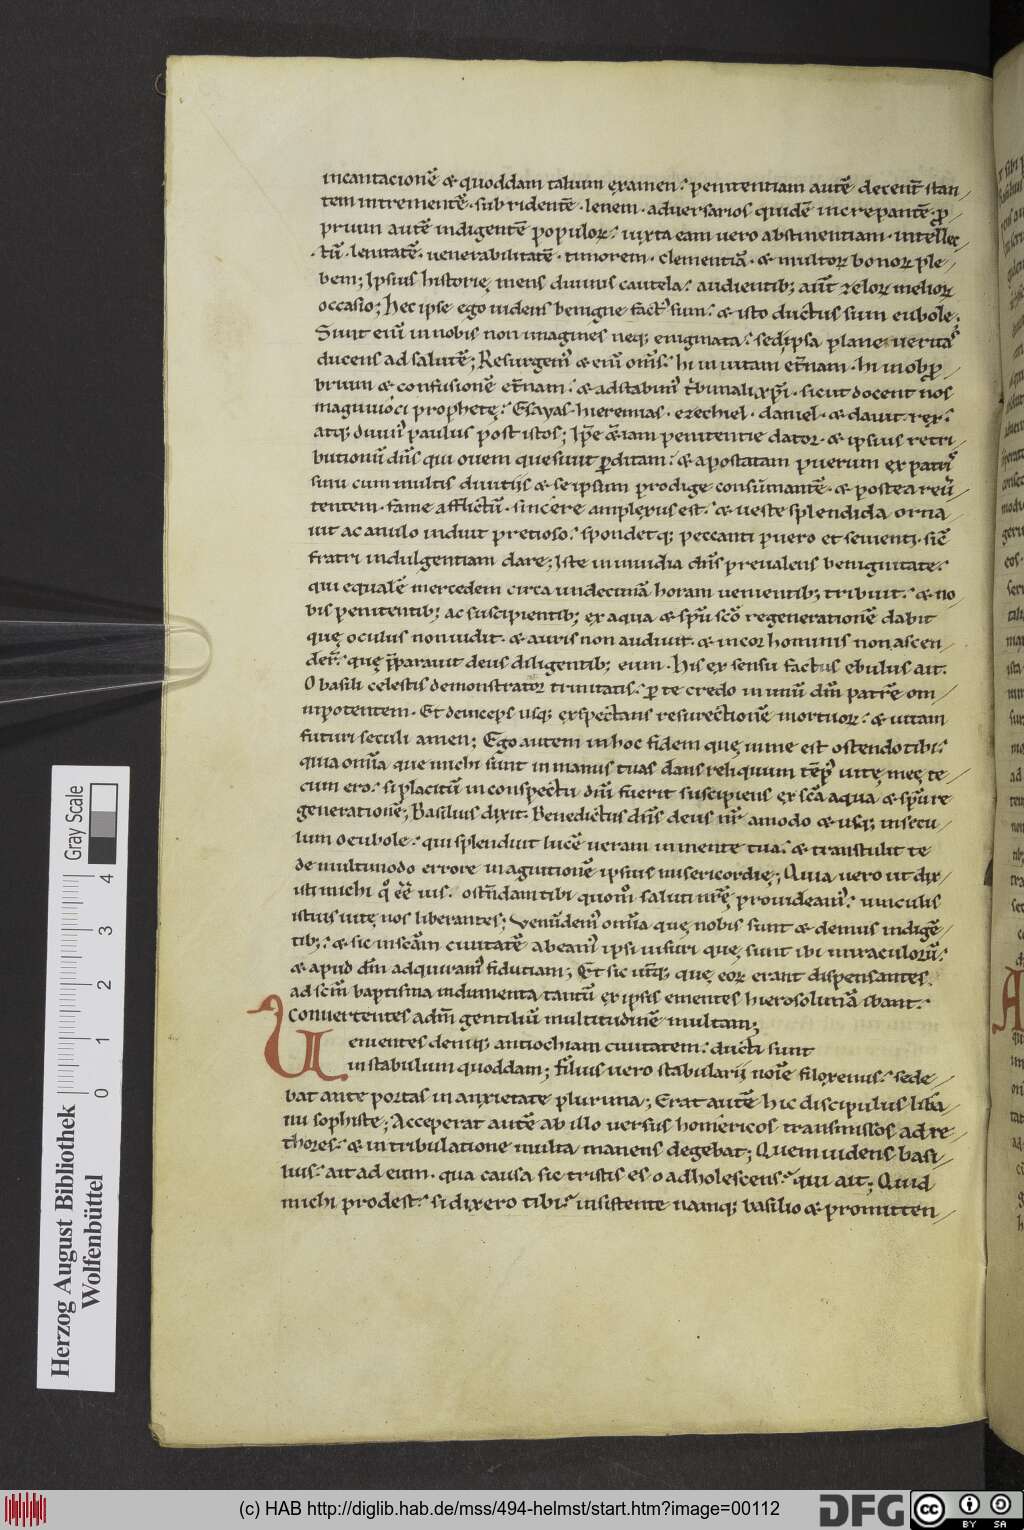 incantacionē & quoddam talium examen. penitentiam autē decent̄ stan
tem intrementē. subridentē. lenem. adversarios quidē increpantē. ꝓ
prium autē indigentē populoꝝ. iuxta eam vero abstinentiam. intellec
tū. lenitatē. venerabilitatē. timorem. clementiā. & multoꝝ bonoꝝ ple
bem; Ipsius historię mens divinis cautela. audientib; aūt zeloꝝ melioꝝ
occasio; Hec ipse ego videns benigne fact' sum. & isto ductus sum eubole.
Sunt eni' in nobis non imagines neq; enigmata. sed ipsa plane veritas
ducens ad salutē; Resurgem' & eni' om̄s. hi in vitam et̄nam. hi in obꝓ
brium & confusionē et̄nam. & adstabim' t'bunali xp̄i. sicut docent nos
magnivoci prophetę. Esayas. hieremias. ezechiel. daniel. & dauit rex.
atq; diuin' paulus post istos; Ip̄e &iam penitentie dator. & ipsius retri
butionū dn̄s qui ouem quesiuit ꝑditam. & apostatam puerum ex patri'
sinu cum multis diuitiis & seipsum prodige consūmantē. & postea reu'
tentem. fame afflictū. sincere amplexus est. & ueste splendida orna
uit ac anulo induit pretioso. spondetq; peccanti puero et seuienti. siē
fratri indulgentiam dare; Iste in inuidia om̄s preualens benignitate.
qui equalē mercedem circa undecimā horam uenientib; tribuit. & no
bis penitentib; ac suscipientib; ex aqua & sp̄u sc̄o regenerationē dabit
quę oculus non uidit. & auris non audiuit. & in cor hominis non ascen
der̄. quę p̄parauit deus diligentib; eum. His ex sensu factus ebulus ait.
O basili celestis demonstrator trinitatis. ꝑ te credo in unū dm̄ patrē om
nipotentem. Et deinceps usq; exspectans resurectionē mortuoꝝ. & uitam
futuri seculi amen; Ego autem in hoc fidem quę in me est ostendo tibi.
qua omīa que michi sunt in manus tuas dans reliquum tēp' uitę meę te
cum ero. si placitū in conspectu dm̄ fuerit suscipiens ex sc̄a aqua & sp̄u re
generationē; Basilius dixit. Benedictus dn̄s deus nr̄. amodo & usq; in secu
lum o eubole. qui splenduit lucē ueram in mente tua. & transtulit te
de multimodo errore in agnitionē ipsius misericordię; Quia uero ut dix
isti michi q° eē uis. ostn̄dam tibi quom° saluti nr̄ę prouideam'. uinculis
istius uitę nos liberantes; Venūdem' omīa quę nobis sunt & demus indigē
tib;. & sic in sc̄am ciuitatē abeam' ipsi uisuri quę sunt ibi miraculorū.
& apud dm̄ adquiram' fidutiam; Et sic ut̄q; quę eoꝝ erant dispensantes.
ad sc̄m baptisma indumenta tantū ex ipsis ementes hierosolimā ibant.
Conuertentes ad dm̄ gentiliū multitudinē multam;
Uenientes deniq; antiochiam ciuitatem. ducti sunt
in stabulum quoddam; filius uero stabularii noīe filoxenus. sede
bat ante portas in anxietate plurima; Erat autē hic discipulus libā
nii sophiste; Acceperat autē ab illo uersus homericos transmissos ad re
thores. & in tribulatione multa manens degebat; Quem uidens basi
lius. ait ad eum. qua causa sic tristis es o adholescens. qui ait; Quid
michi prodest. si dixero tibi. insistente namq; basilio & promitten
Herzog August Bibliothek
Wolfenbüttel
Gray Scale
0 1 2 3 4
(c) HAB http://diglib.hab.de/mss/494-helmst/start.htm?image=00112
DFG
cc BY SA